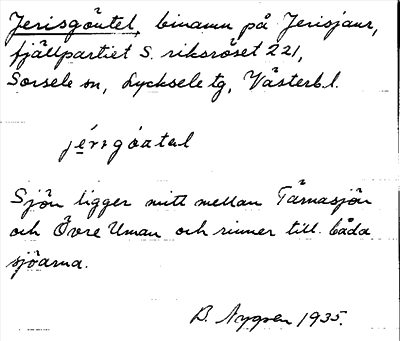 Jerisgåutel, binamn på Jerisjaur,
fjällpartiet S. riksröset 221,
Sorsele sn, Lycksele tg, Västerb. l.
Sjön ligger mitt mellan Tärnasjön
och Övre Uman och rinner till båda
sjöarna.
B. Nygren 1935.